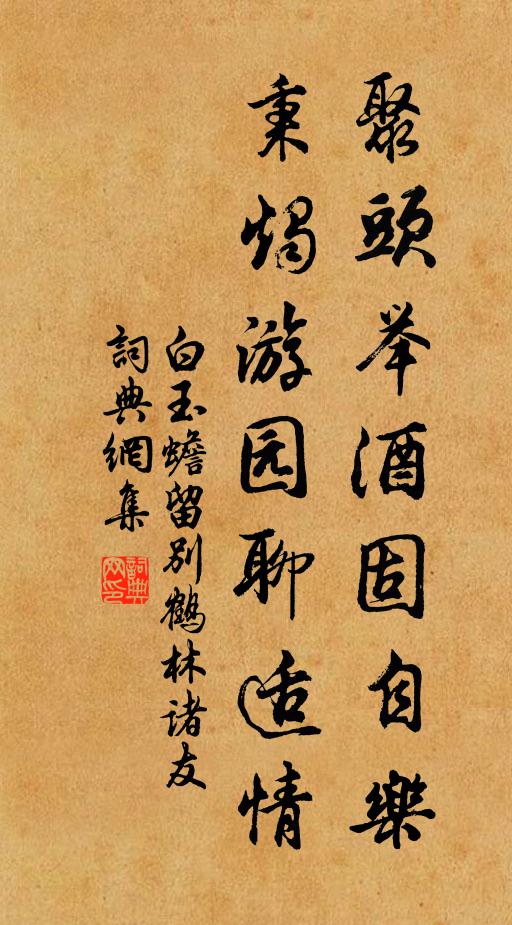 聚頭举酒固自樂
秉燭游园聊适情
白玉蟾留别鶴林诸友
詞典網集
詞典網印